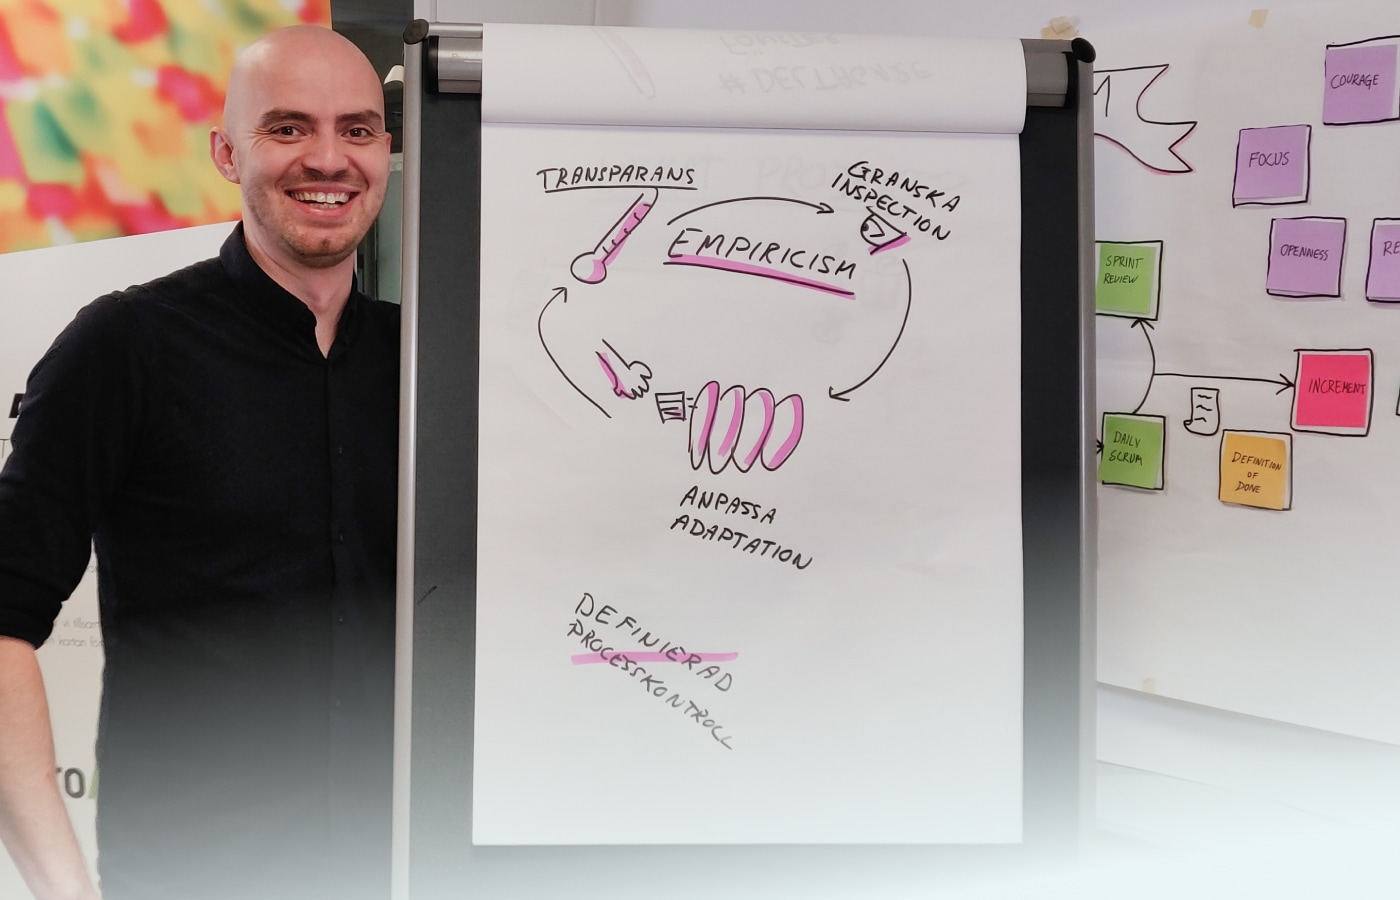 TRANSPARANS
GRANSKA
INSPECTION
EMPIRICISM
ANPASSA
ADAPTATION
DEFINIERAD
PROCESSKONTROLL
COURAGE
FOCUS
OPENNESS
RE
SPRINT
REVIEW
INCREMENT
DAILY
SCRUM
DEFINITION
OF
DONE
# DELTAGARE
TO